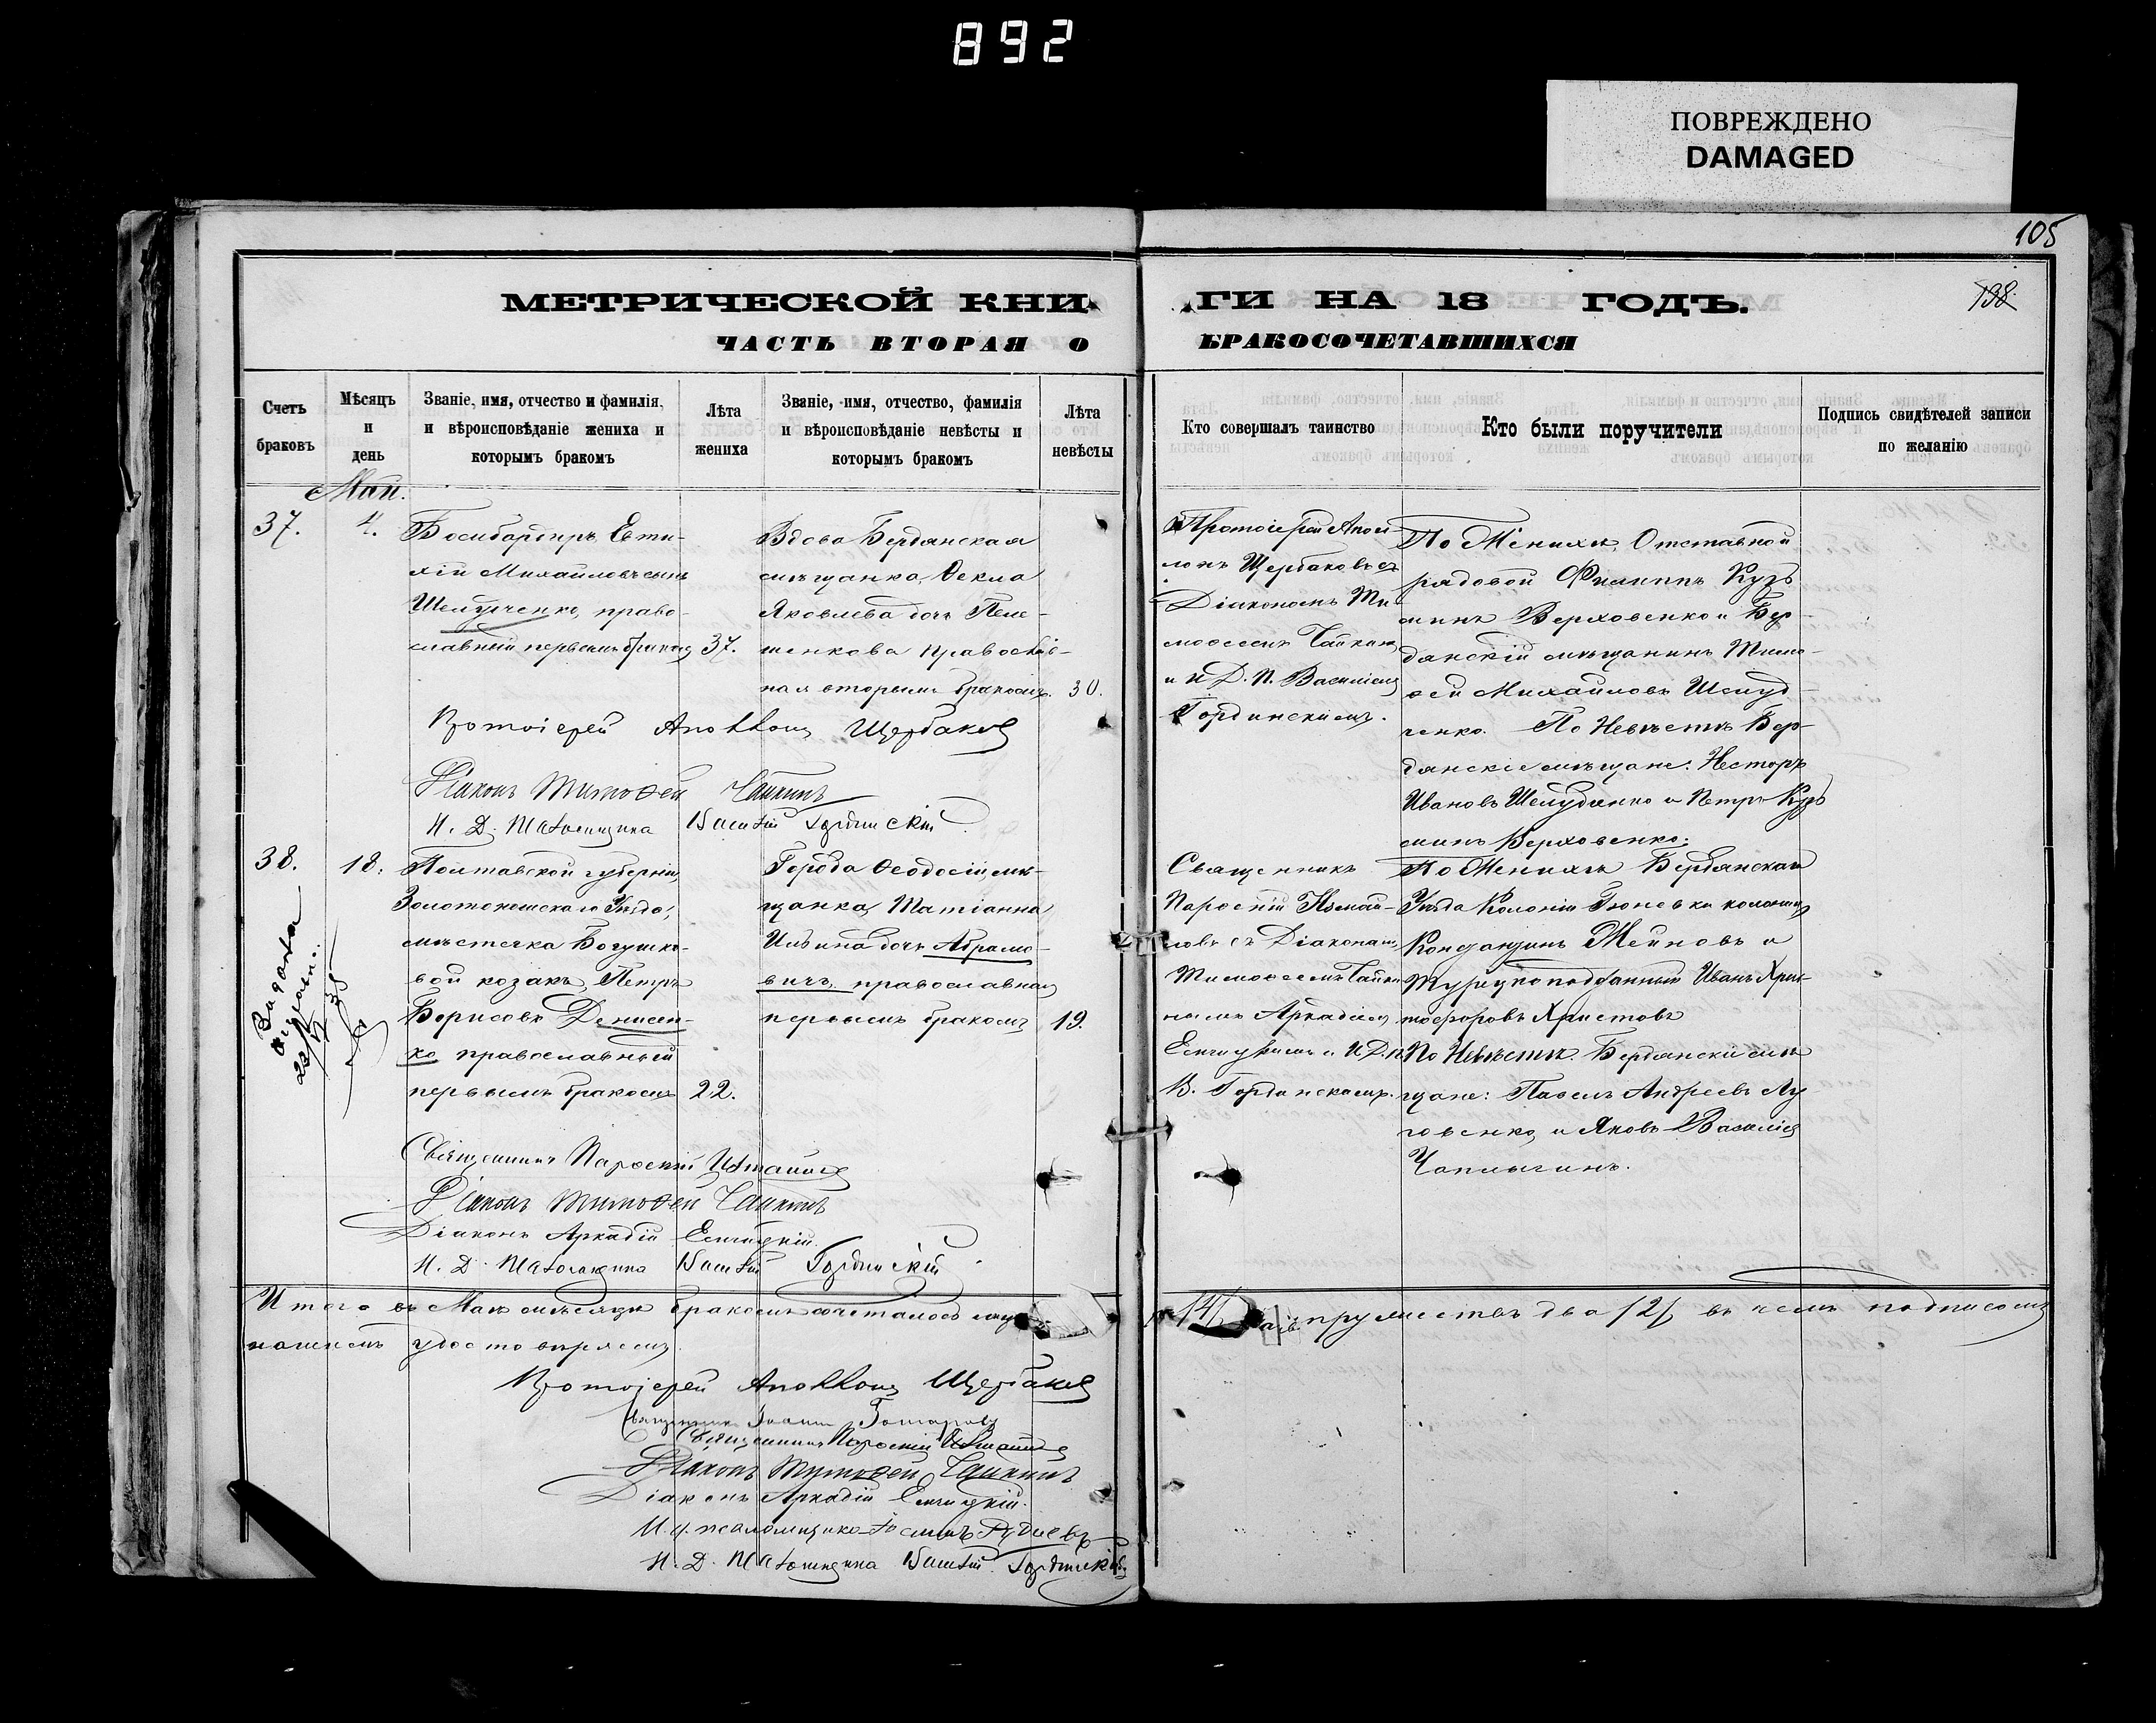 892
ПОВРЕЖДЕНО
DAMAGED
105
198.
МЕТРИЧЕСКОЙ КНИ
ГИ НА 18 ГОДЪ.
ЧАСТЬ ВТОРАЯ О
БРАКОСОЧЕТАВШИХСЯ
Счетъ браковъ
Мѣсяцъ и день
Званіе, имя, отчество и фамилія, и вѣроисповѣданіе жениха и которымъ бракомъ
Лѣта жениха
Званіе, имя, отчество, фамилія и вѣроисповѣданіе невѣсты и которымъ бракомъ
Лѣта невѣсты
Кто совершалъ таинство
Кто были поручители
Подпись свидѣтелей записи по желанію
Май.
37.
4.
Бомбардиръ Евти-
хій Михайловъ сынъ
право-
славный первымъ бракомъ
37.
Вдова Бердянская
мѣщанка Ѳекла
Яковлева дочь Пеле-
шенкова православ-
ная вторымъ бракомъ.
30.
Протоіерей Апол-
лонъ Щербаковъ съ
Діакономъ Ти-
моѳеемъ Чайкин
и И. Д. П. Василіемъ
Гординскимъ.
По Женихѣ, Отставной
рядовой Филиппъ Кузь
минъ Верховенко и Бер-
дянскій мѣщанинъ Тимо-
ѳей Михайловъ Шемуд-
ченко. По Невѣстѣ Бер-
дянскіе мѣщане: Несторъ
Ивановъ и Петръ Кузь
минъ Верховенко.
Протоіерей Аполлонъ Щербаковъ
Діаконъ Тимоѳей Чайкинъ
И. Д. Псаломщика Василій Гординскій
38.
18.
Полтавской губерніи,
Золотоношскаго Уѣзда,
мѣстечка Богушко-
вой козакъ, Петръ
Борисовъ Денисен-
ко православный
первымъ бракомъ
22.
Города Ѳеодосіи мѣ-
щанка Татіанна
Ильина дочь Абрамо-
вичъ, православная
первымъ бракомъ
19.
Священникъ
съ Діаконами
Тимоѳеемъ Чайки
нымъ Аркадіемъ
и И. Д. П.
В. Гординскимъ.
По Женихѣ Бердянскаго
Уѣзда Колоніи
и
Турецкоподданный Иванъ Хрис-
тофоровъ Христовъ
По Невѣстѣ. Бердянскіе мѣ
щане: Павелъ Андреевъ Лу
говенко, и Яковъ Василіевъ
Чаплыгинъ.
Выдана
Священникъ
Діаконъ Тимоѳей Чайкинъ
Діаконъ Аркадій
И. Д. Псаломщика Василій Гординскій
Итого въ Маѣ мѣсяцѣ бракомъ сочеталось
супружествъ два /2/ въ чемъ подписомъ
нашимъ удостовѣряемъ
Протоіерей Аполлонъ Щербаковъ
Священникъ Іоаннъ
Священникъ
Діаконъ Тимоѳей Чайкинъ
Діаконъ Аркадій
И. д. псаломщика
И. Д. Псаломщика Василій Гординскій